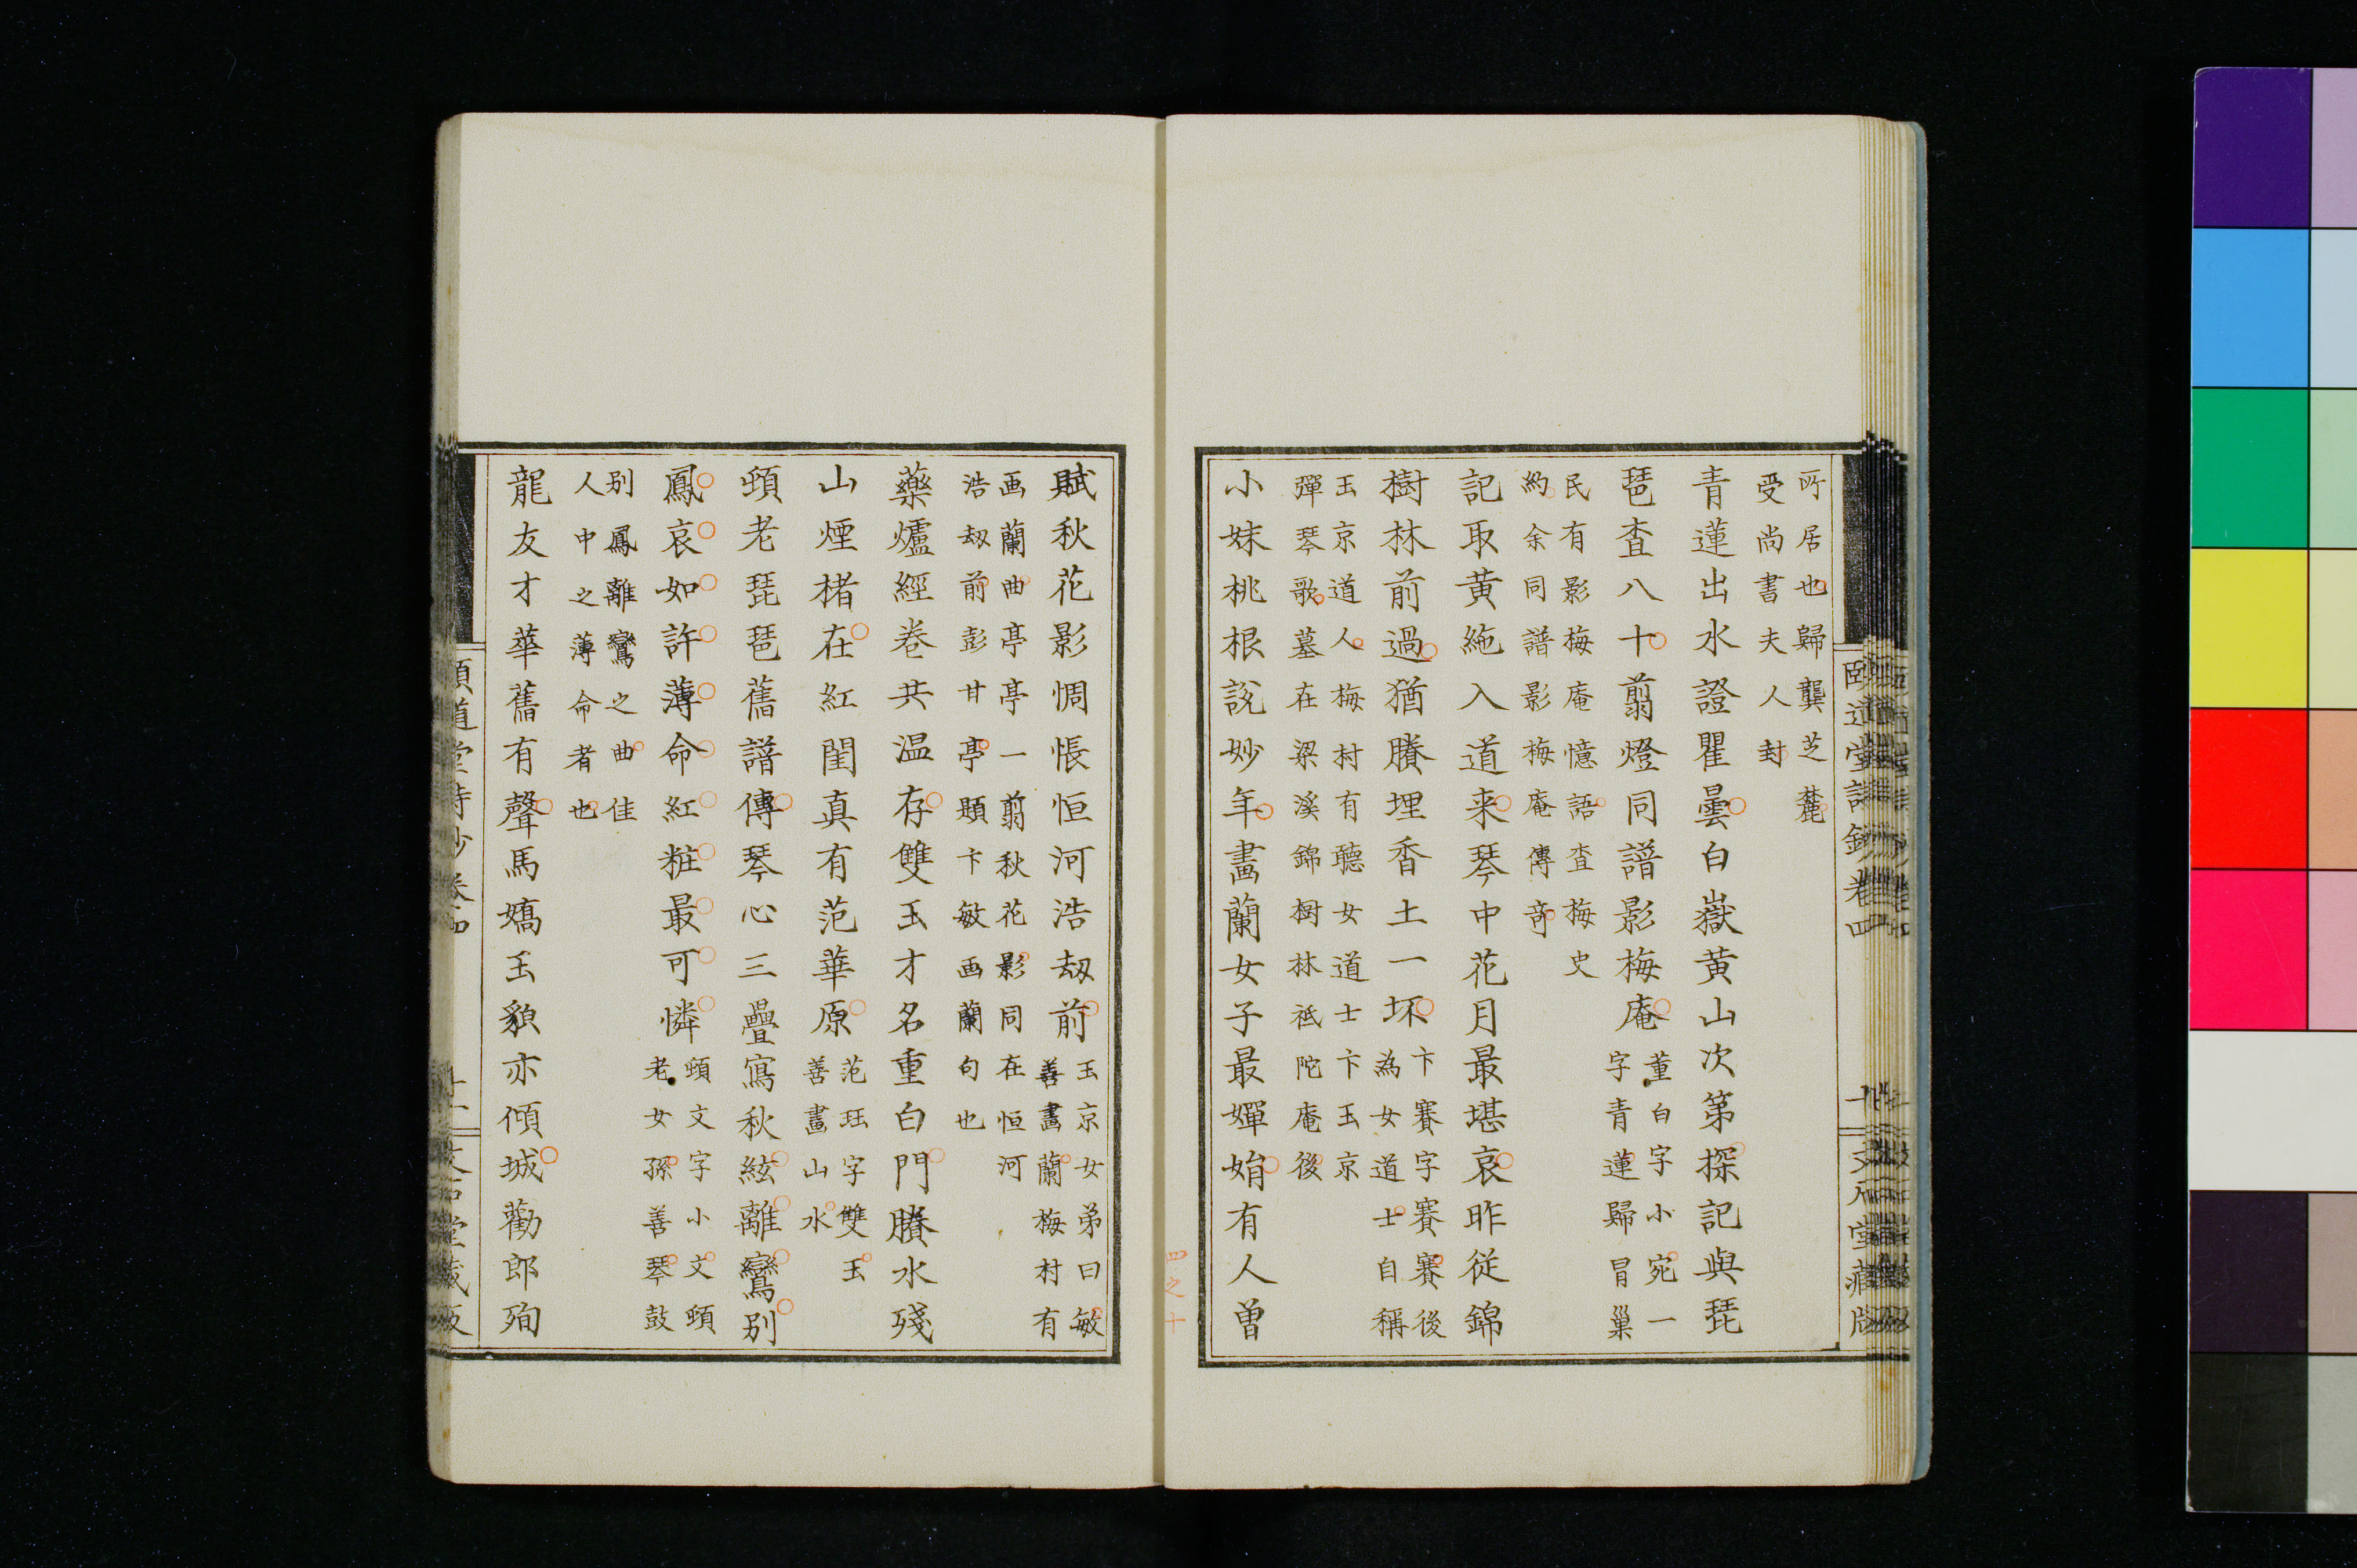 所居也歸龔芝麓
受尚書夫人封
青蓮出水證瞿曇白嶽黄山次第探記與琵
琶査八十翦燈同譜影梅庵
董白字小宛一
字青蓮歸冒巢
民有影梅庵憶語査梅史
約余同譜影梅庵傳奇
記取黄絁入道来琴中花月最堪哀昨従錦
樹林前過猶賸埋香土一坏
卞賽字賽賽後
為女道士自稱
玉京道人梅村有聽女道士卞玉京
彈琴歌墓在梁溪錦樹林祗陀庵後
小妹桃根説妙年畵蘭女子最嬋娟有人曽
賦秋花影惆悵恒河浩刼前
玉京女弟曰敏
善畫蘭梅村有
画蘭曲亭亭一翦秋花影同在恒河
浩刼前彭甘亭題卞敏画蘭句也
藥爐經卷共温存雙玉才名重白門賸水殘
山煙楮在紅閨真有范華原
范珏字雙玉
善畫山水
頓老琵琶舊譜傳琴心三疊寫秋絃離鸞别
鳳哀如許薄命紅粧最可憐
頓文字小文頓
老女孫善琴鼓
别鳳離鸞之曲佳
人中之薄命者也
龍友才華舊有聲馬嬌玉貌亦傾城勸郎殉
頤道堂詩鈔卷四
文石堂藏版
四之十